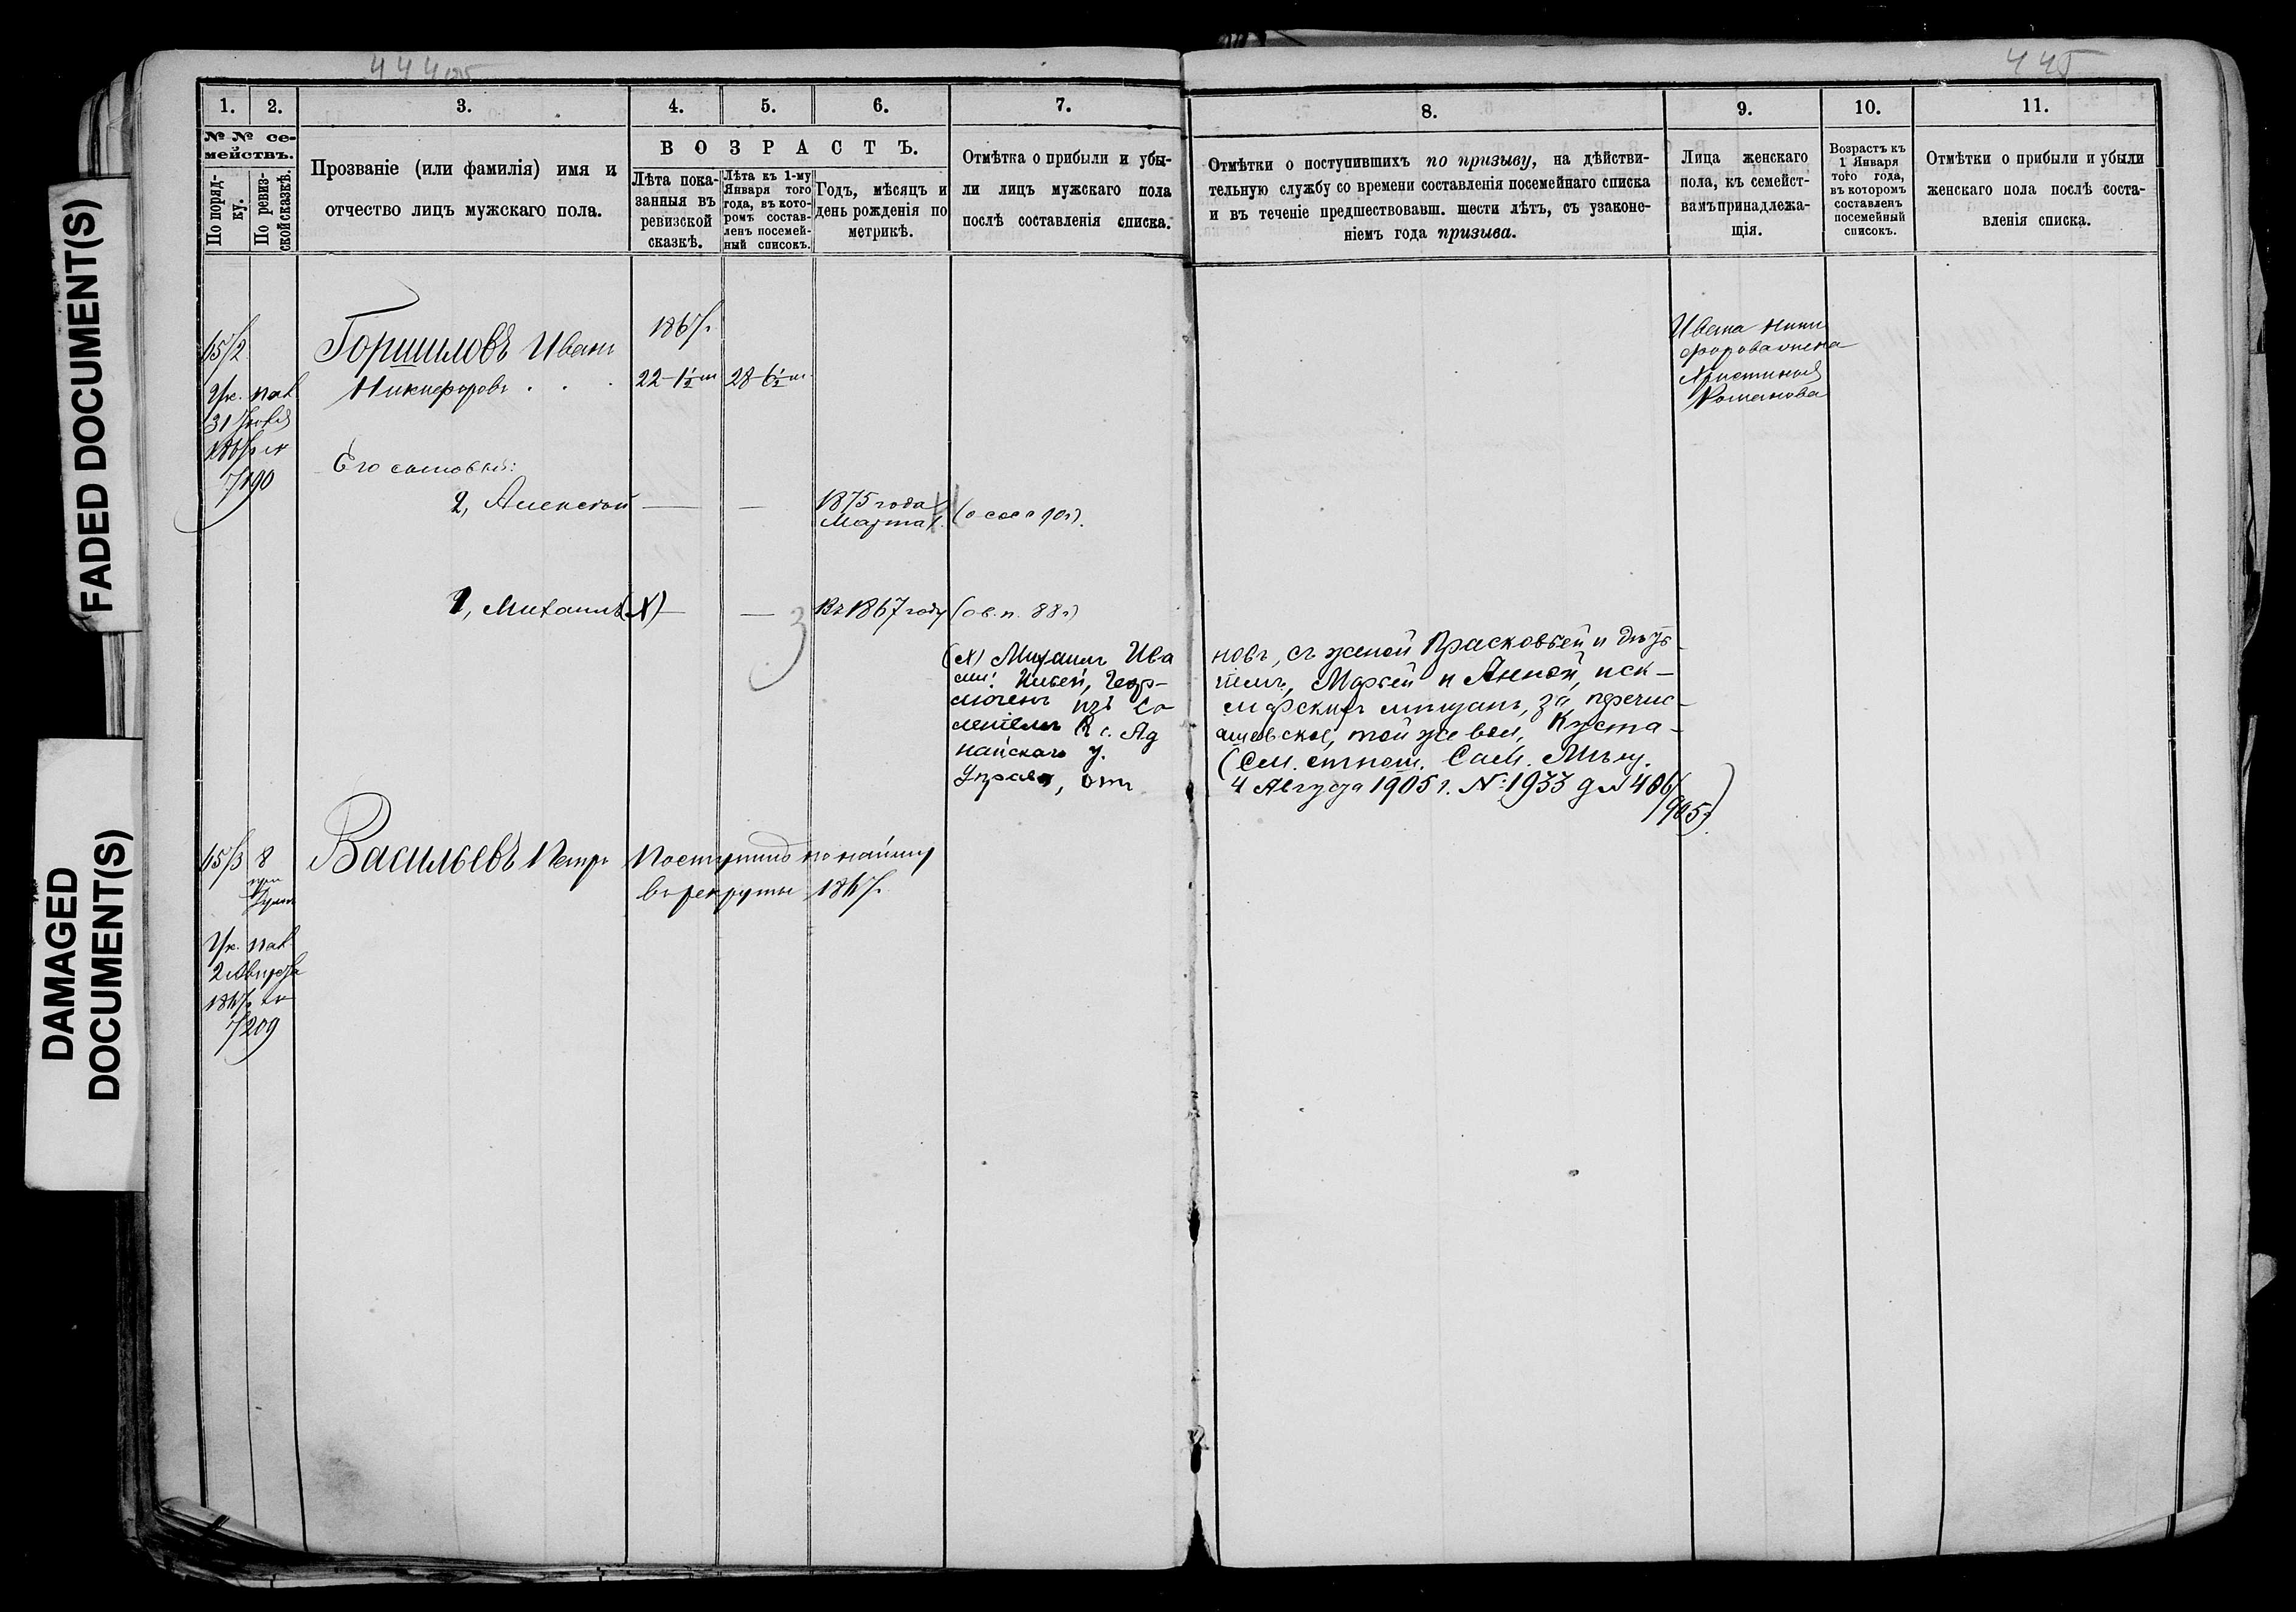 444об
445
FADED DOCUMENT(S)
DAMAGED
DOCUMENT(S)
1.
2.
3.
4.
5.
6.
7.
№ № се-
мействъ.
По поряд-
ку.
По ревиз-
ской сказкѣ.
Прозваніе (или фамилія) имя и
отчество лицъ мужскаго пола.
ВОЗРАСТЪ.
Лѣта пока-
занныя въ
ревизской
сказкѣ.
Лѣта къ 1-му
Января того
года, въ кото-
ромъ состав-
ленъ посемей-
ный списокъ.
Годъ, мѣсяцъ и
день рожденія по
метрикѣ.
Отмѣтка о прибыли и убы-
ли лицъ мужскаго пола
послѣ составленія списка.
8.
9.
10.
11.
Отмѣтки о поступившихъ по призыву, на дѣйстви-
тельную службу со времени составленія посемейнаго списка
и въ теченіе предшествовавш. шести лѣтъ, съ узаконе-
ніемъ года призыва.
Лица женскаго
пола, къ семейст-
вамъ принадлежа-
щія.
Возрастъ къ
1 Января
того года,
въ которомъ
составленъ
посемейный
списокъ.
Отмѣтки о прибыли и убыли
женскаго пола послѣ соста-
вленія списка.
Иванъ
Никифоровъ
22-1½ м 28-6½ м
Ивана Ники
форова жена
Христинья
Романова
31
7190
Его сыновья:
2, Алексѣй — — 1875 года
Марта
1, Михаилъ (X) — — 3 Въ 1867 году (ов. п. 88 г)
(X) Михаилъ Ива
новъ, съ женой Прасковьей и дѣть
Марьей и Анной, иск-
мѣщанъ, за перечис-
той же вол, Куста-
найскаго у.
(См. отнош. Сам. Мѣщ.
Управы, отъ
4 Августа 1905 г. № 1933 д № 406/
905)
8 Васильевъ Петръ Поступилъ по найму
въ рекруты
2 Августа
7209